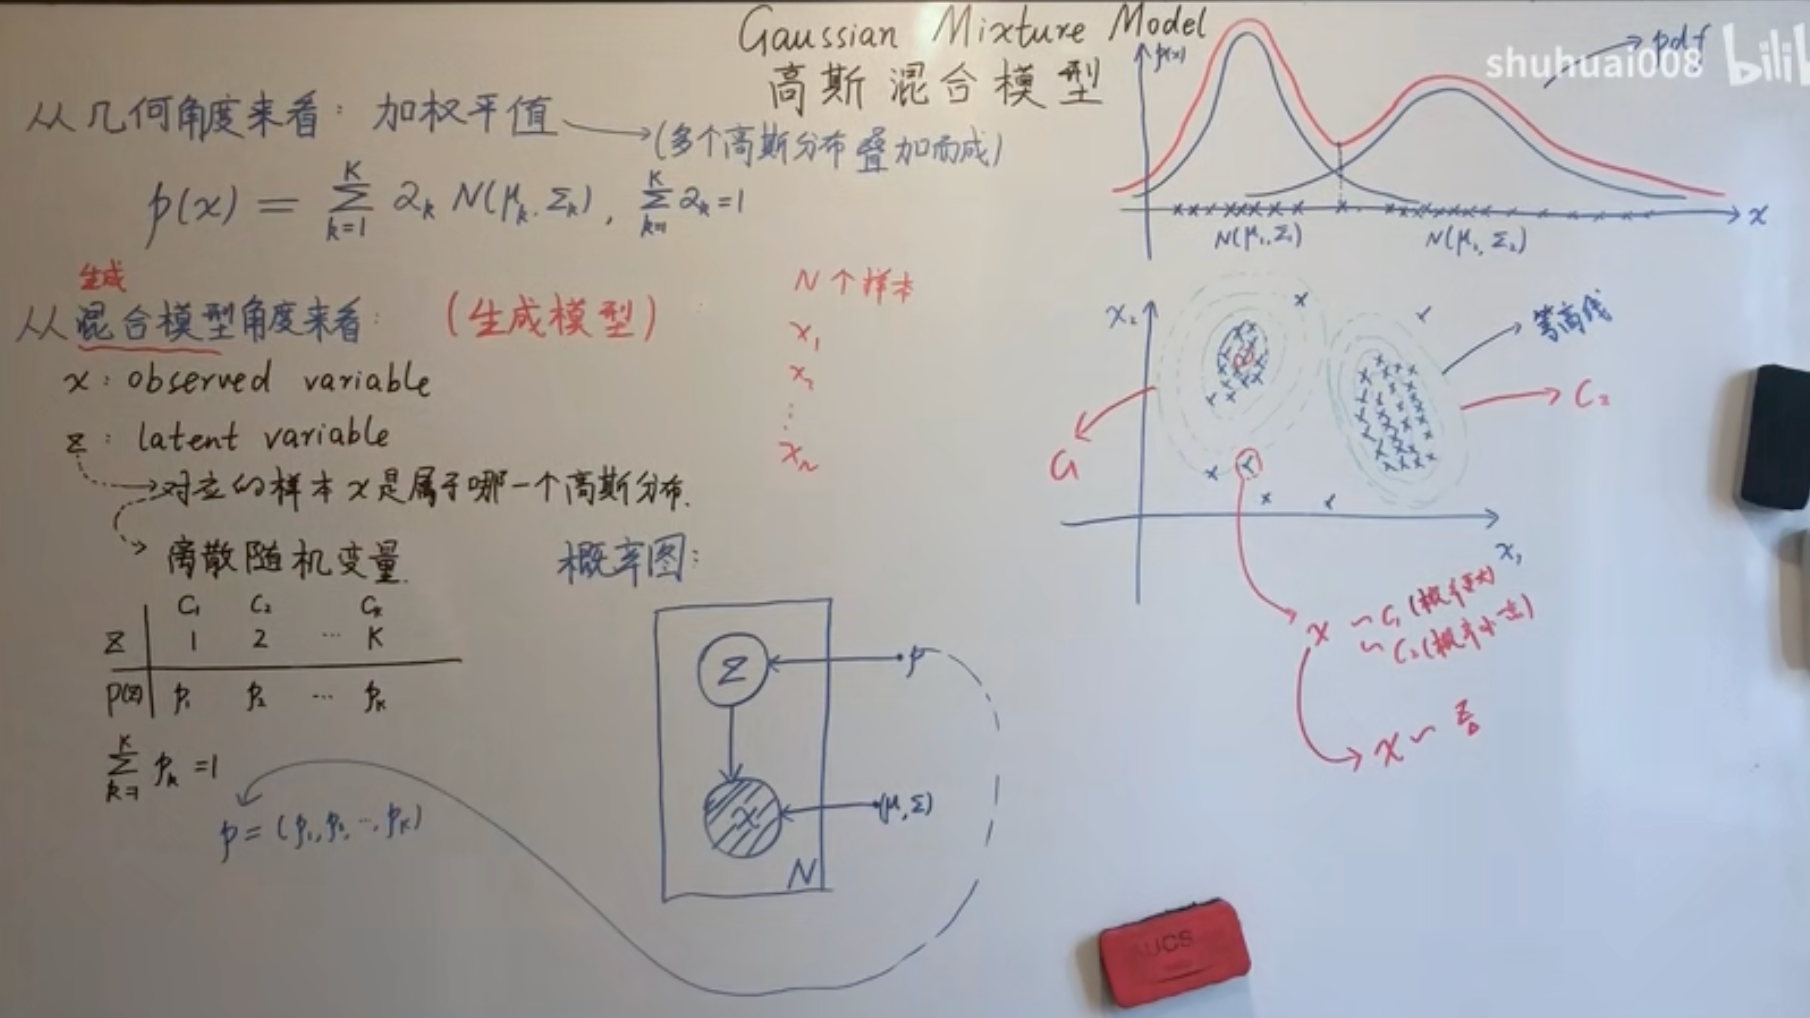 Gaussian Mixture Model
高斯混合模型
shuhuai008 bilibili
从几何角度来看: 加权平值
(多个高斯分布叠加而成)
p(x) = Σ_{k=1}^{K} α_k N(μ_k, Σ_k), Σ_{k=1}^{K} α_k = 1
生成
从混合模型角度来看: (生成模型)
x: observed variable
z: latent variable
对应的样本 x 是属于哪一个高斯分布.
离散随机变量.
C₁ C₂ C_K
z 1 2 ... K
p(z) p₁ p₂ ... p_K
Σ_{k=1}^{K} p_k = 1
p = (p₁, p₂, ..., p_K)
N个样本
x₁
x₂
⋮
x_N
概率图:
z
p
x
(μ, Σ)
N
p(x)
pdf
x
N(μ₁, Σ₁) N(μ₂, Σ₂)
x₂
等高线
C₁
C₂
x₁
x ~ C₁ (概率
~ C₂ (概率小一点)
x ~ z
UCS